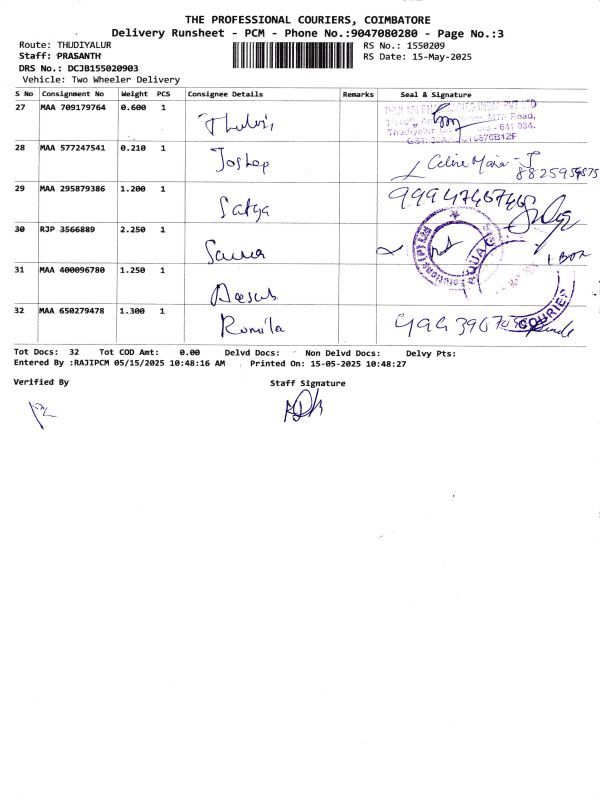 THE PROFESSIONAL COURIERS, COIMBATORE
Delivery Runsheet - PCM - Phone No.:9047080280 - Page No.:3
Route: THUDIYALUR RS No.: 1550209
Staff: PRASANTH RS Date: 15-May-2025
DRS No.: DCJB155020903
Vehicle: Two Wheeler Delivery
S No Consignment No Weight PCS Consignee Details Remarks Seal & Signature
27 MAA 709179764 0.600 1
Road,
Thudiyalur
28 MAA 577247541 0.210 1 Celine Maria
29 MAA 295879386 1.200 1
Satya
30 RJP 3566889 2.250 1
AQUA
1 BOX
31 MAA 400096780 1.250 1
COURIER
32 MAA 650279478 1.300 1 Romila
Tot Docs: 32 Tot COD Amt: 0.00 Delvd Docs: Non Delvd Docs: Delvy Pts:
Entered By :RAJIPCM 05/15/2025 10:48:16 AM Printed On: 15-05-2025 10:48:27
Verified By Staff Signature